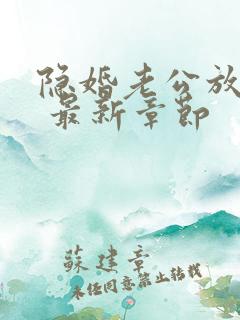 隐婚老公放
最新章节
蘇建章
未经同意禁止转载